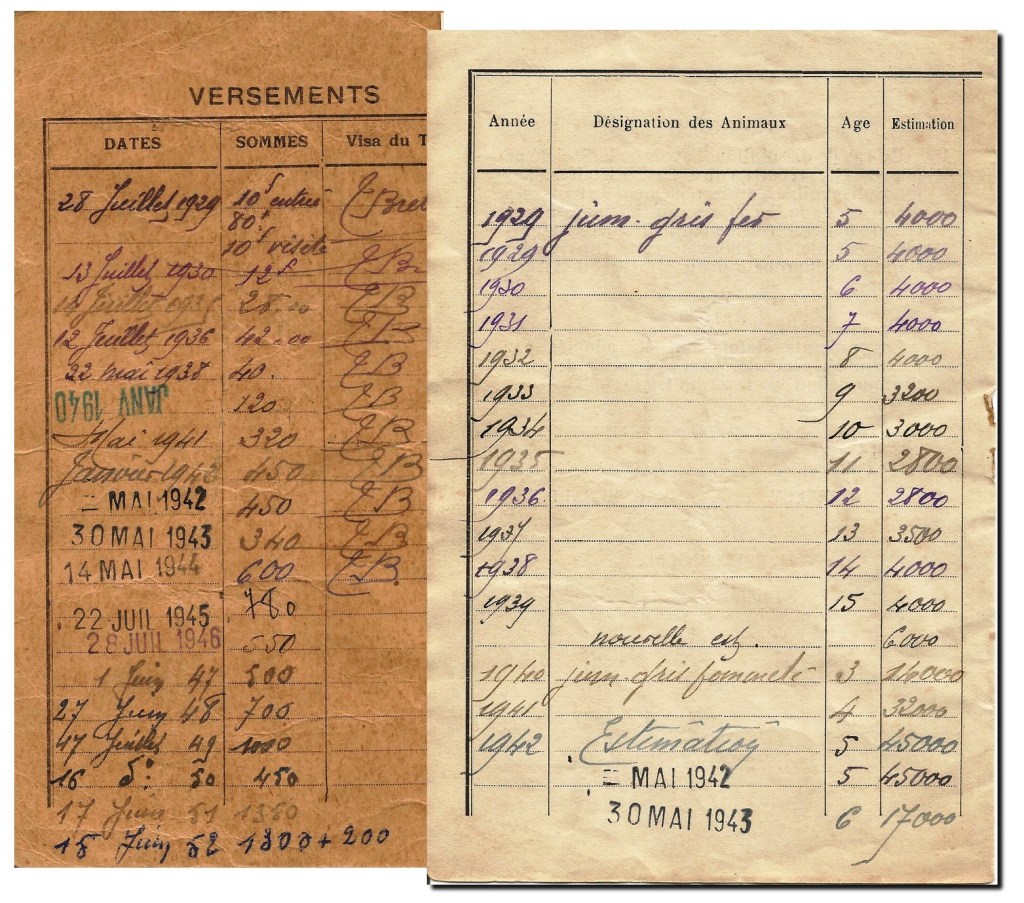 VERSEMENTS
DATES SOMMES Visa du T
28 Juillet 1929 10f entrée
80f
10f visite
13 Juillet 1930 12f TB
Juillet 1935 28.00 TB
12 Juillet 1936 42.00
22 mai 1938 40. TB
JANV 1940 120 TB
Mai 1941 320 TB
Janvier 1942 450 TB
= MAI 1942 450 TB
30 MAI 1943 340 TB
14 MAI 1944 600 TB.
22 JUIL 1945 780
28 JUIL 1946 550
1 Juin 47 500
27 Juin 48 700
Juillet 49 1000
16 do 50 450
17 Juin 51 1350
15 Juin 52 1300 + 200
Année Désignation des Animaux Age Estimation
1929 jum. gris fer 5 4000
1929 5 4000
1930 6 4000
1931 7 4000
1932 8 4000
1933 9 3200
1934 10 3000
1935 11 2800
1936. 12 2800
1937 13 3500
1938 14 4000
1939 15 4000
nouvelle est. 6000
1940 jum. gris 3 14000
1941 4 32000
1942 Estimation 5 45000
= MAI 1942 5 45000
30 MAI 1943 6 17000